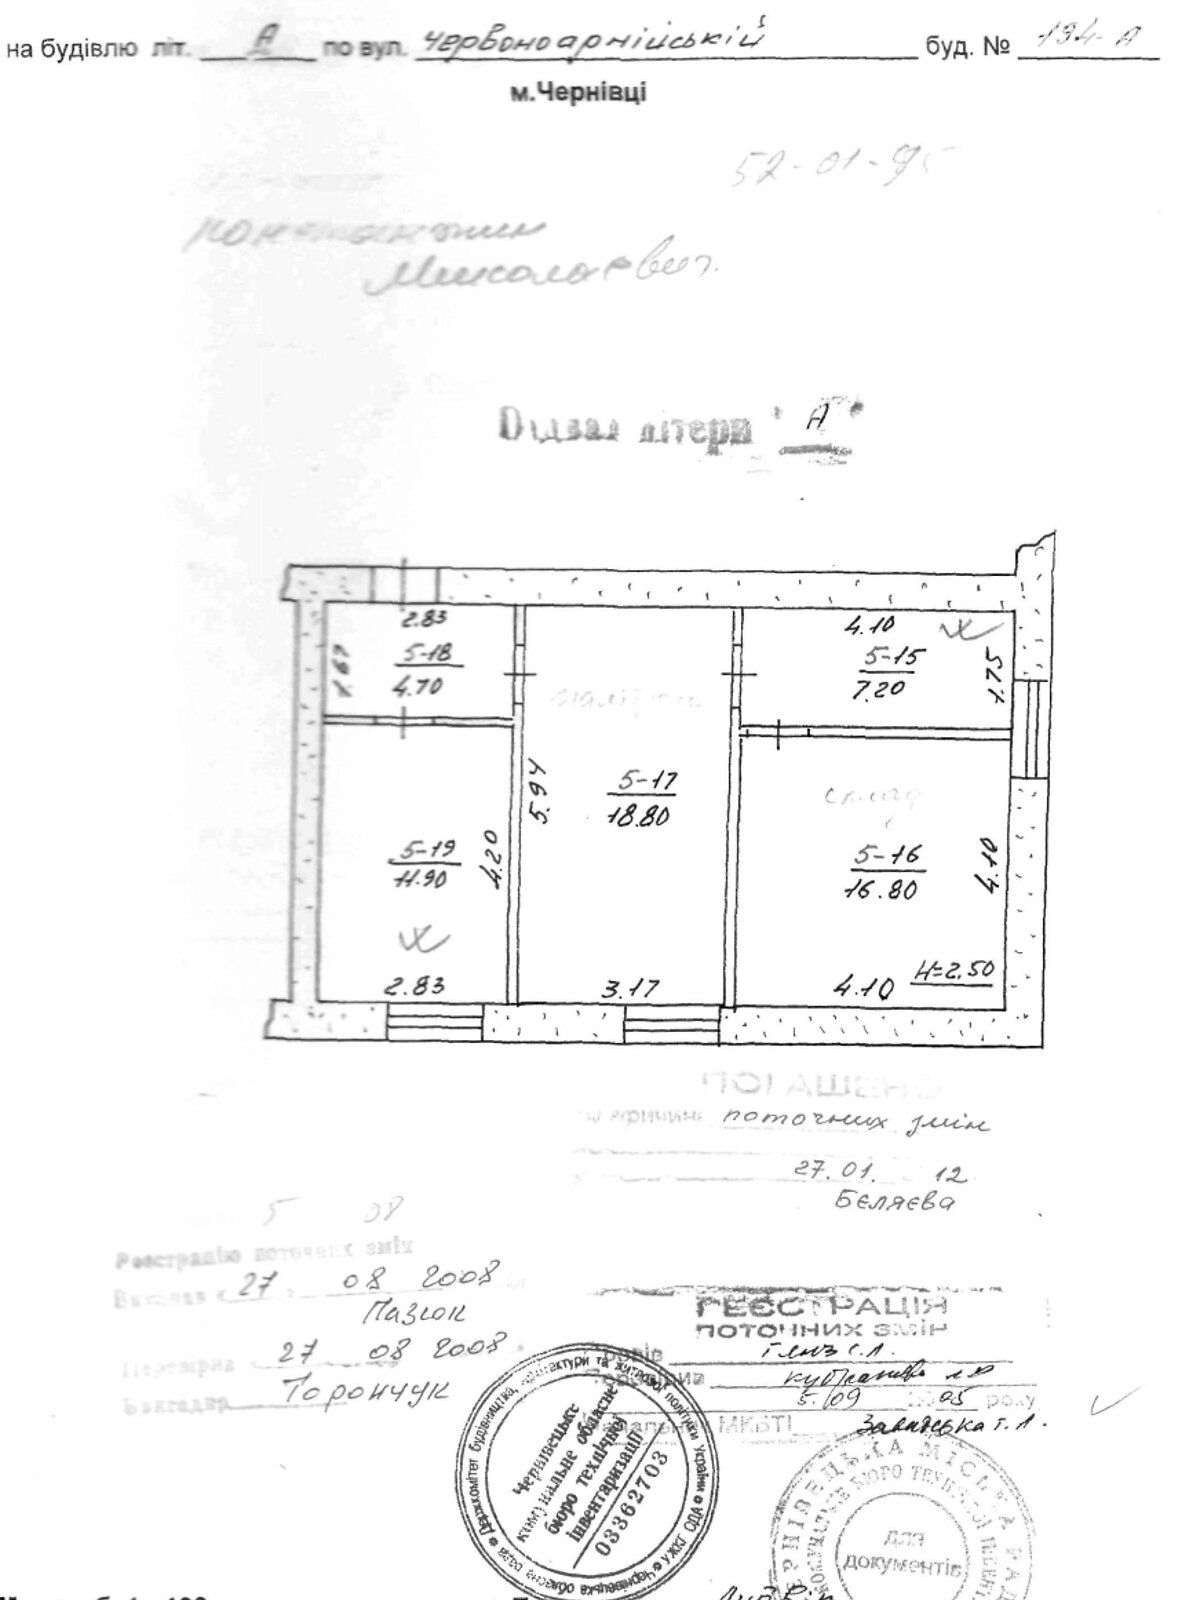 на будівлю літ. А по вул. Червоноармійській буд. № 194-А
м.Чернівці
52-01-95
Миколаєвич.
Підвал літери "А"
2.83
4.10
5-18
4.70
1.67
5-15
7.20
1.75
5-17
18.80
5.94
склад
5-19
11.90
4.20
5-16
16.80
4.10
2.83
3.17
4.10
H=2.50
ПОГАШЕНО
поточних змін
27.01. 12
Бєляєва
5 08
Реєстрацію поточних змін
Виконав 27 08 2008
Пазюк
Перевірив 27 08 2008
Торончук
РЕЄСТРАЦІЯ
ПОТОЧНИХ ЗМІН
5/09 2005 року
МКБТІ Завадецька Т.Л.
Держкомітет будівництва, архітектури та житлової політики України УЖКГ ОДА Чернівецька обласна рада
Чернівецьке
комунальне обласне
бюро технічної
інвентаризації
03362703
ЧЕРНІВЕЦЬКА МІСЬКА РАДА
КОМУНАЛЬНЕ БЮРО ТЕХНІЧНОЇ ІНВЕНТ
ДЛЯ
ДОКУМЕНТІВ